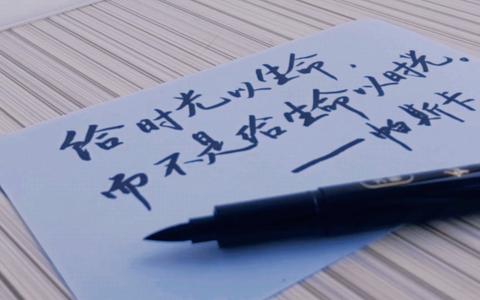 给时光以生命，
而不是给生命以时光。
——帕斯卡